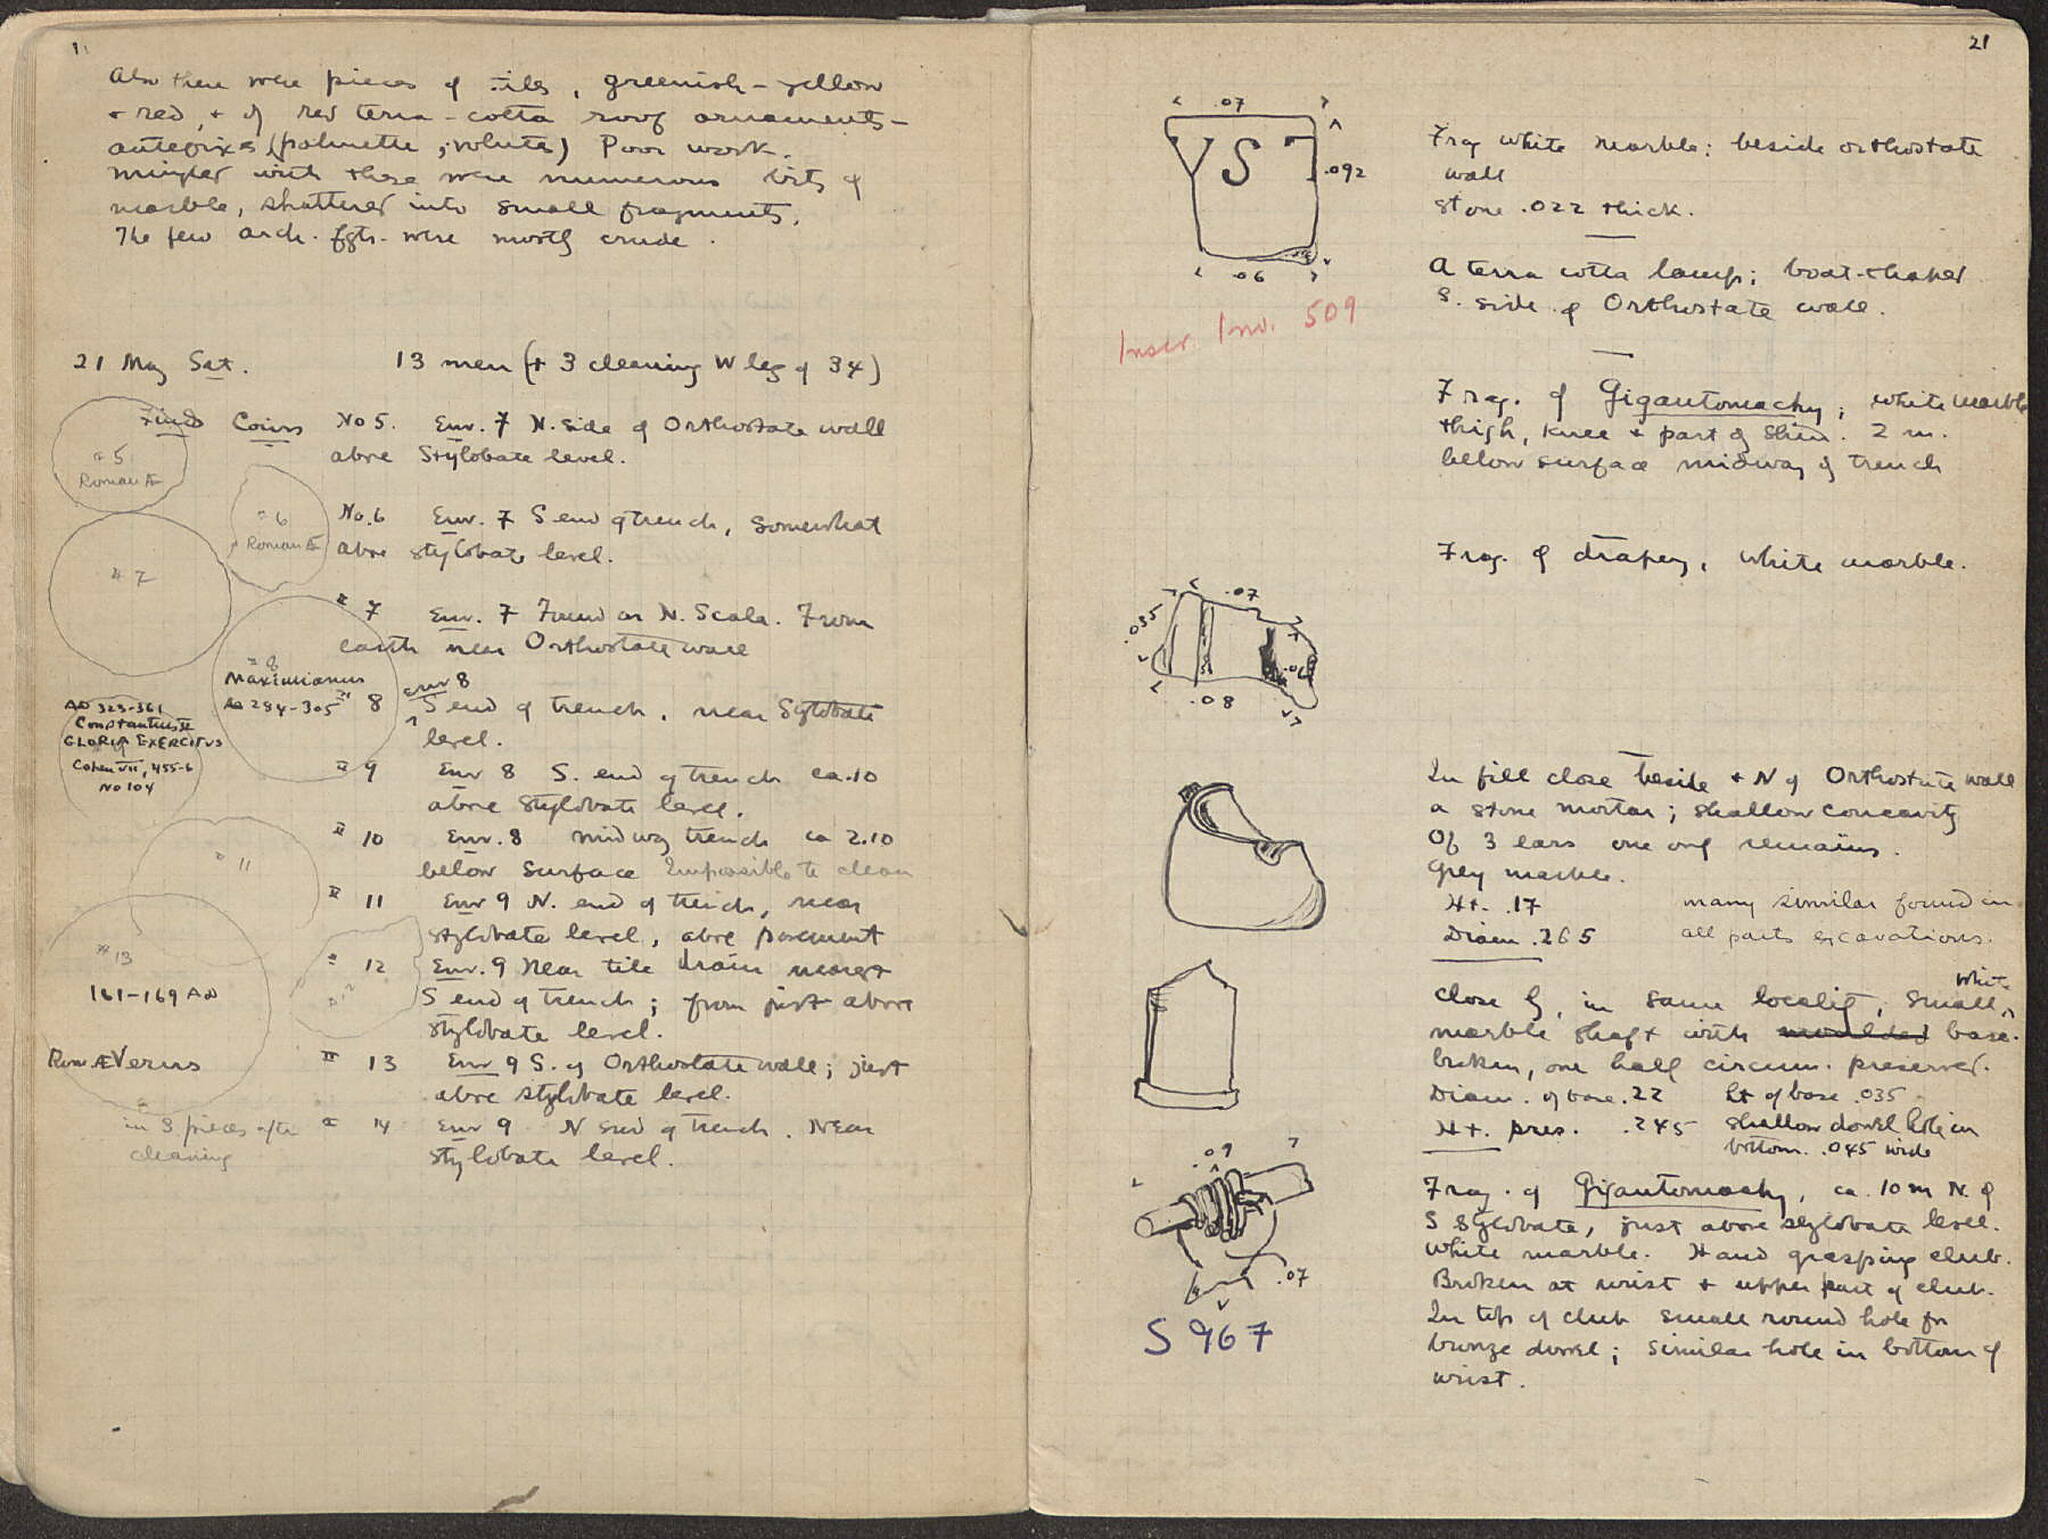 Also there were pieces of tiles, greenish-yellow
+ red, + of red terra-cotta roof ornaments-
antefixes (palmette, volute) Poor work.
mingled with these were numerous bits of
marble, shattered into small fragments.
The few arch. fgts. were mostly crude.
21 May Sat. 13 men (+ 3 cleaning W leg of 34)
Finds Coins No 5. Env. 7 N. side of Orthostate wall
above Stylobate level.
#5
Roman Æ
No. 6 Env. 7 S end of trench, somewhat
above stylobate level.
#6
Roman Æ
#7
" 7 Env. 7 Found on N. Scala. From
earth near Orthostate wall
#8
Maximianus
AD 284-305
" 8 Env 8 S end of trench, near Stylobate
level.
AD 323-361
Constantius II
GLORIA EXERCITUS
Cohen VII, 455-6
No 104
" 9 Env 8 S. end of trench ca .10
above stylobate level.
" 10 Env. 8 midway trench ca 2.10
below surface Impossible to clean
#11
" 11 Env 9 N. end of trench, near
stylobate level, above pavement
" 12 Env. 9 Near tile drain nearest
S end of trench; from just above
stylobate level.
#12
#13
161-169 AD
Rom. Æ Verus
" 13 Env 9 S. of Orthostate wall; just
above stylobate level.
in 3 pieces after
cleaning
" 14 Env 9 N end of trench. Near
stylobate level.
21
.07
YST
.092
.06
Inscr. Inv. 509
Frag white marble; beside orthostate
wall
Stone .022 thick.
A terra cotta lamp; boat-shaped
S. side of Orthostate wall.
Frag. of Gigantomachy; white marble
thigh, knee + part of shin. 2 m.
below surface midway of trench
Frag. of drapery, white marble.
.07
.035
.06
.08
In fill close beside + N of Orthostate wall
a stone mortar; shallow concavity
Of 3 ears one only remains.
Grey marble.
Ht. .17
Diam .265
many similar found in
all parts excavations.
Close by, in same locality, small white
marble shaft with moulded base.
broken, one half circum. preserved.
Diam. of base .22 ht of base .035
Ht. pres. .245 shallow dowel hole in
bottom. .045 wide
.09
.07
S 967
Frag. of Gigantomachy, ca. 10 m N. of
S Stylobate, just above stylobate level.
White marble. Hand grasping club.
Broken at wrist + upper part of club.
In top of club small round hole for
bronze dowel; similar hole in bottom of
wrist.